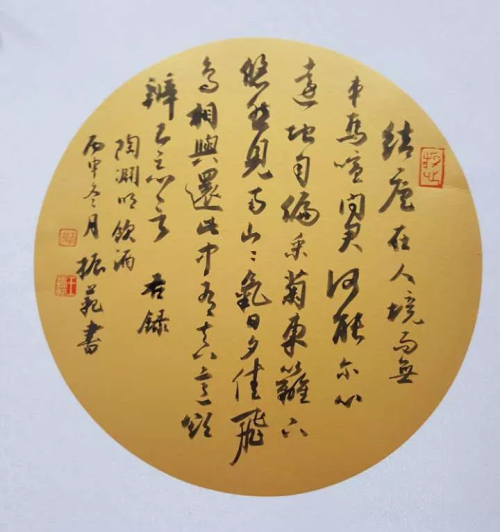 結廬在人境而無
車馬喧問君何能尓心
遠地自偏采菊東籬下
悠然見南山々氣日夕佳飛
鳥相與還此中有真意欲
辨已忘言 右録
陶淵明飲酒
丙申冬月 振範書